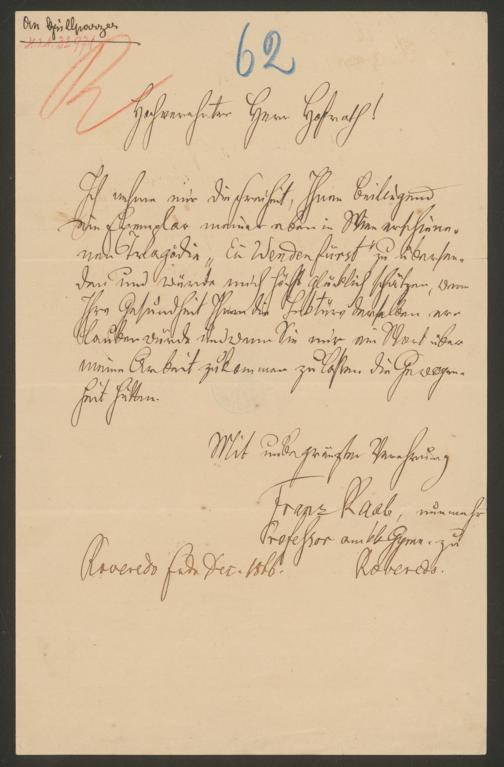 An Grillparzer
62
R
Hochverehrter Herr Hofrath!
Ich nehme mir die Freiheit, Ihnen beiliegend
ein Exemplar meiner eben in Wien erschiene-
nen Tragödie „Ein Wendenfürst" zu übersen-
den und würde mich höchst glücklich schätzen, wenn
Ihre Gesundheit Ihnen die Lektüre derselben er-
lauben würde und wenn Sie mir ein Wort über
meine Arbeit zukommen zu lassen die Gewogen-
heit hätten.
Mit unbegränzter Verehrung
Franz Raab, nunmehr
Professor am kk Gymn. zu
Roveredo Ende Dec. 1866. Roveredo.